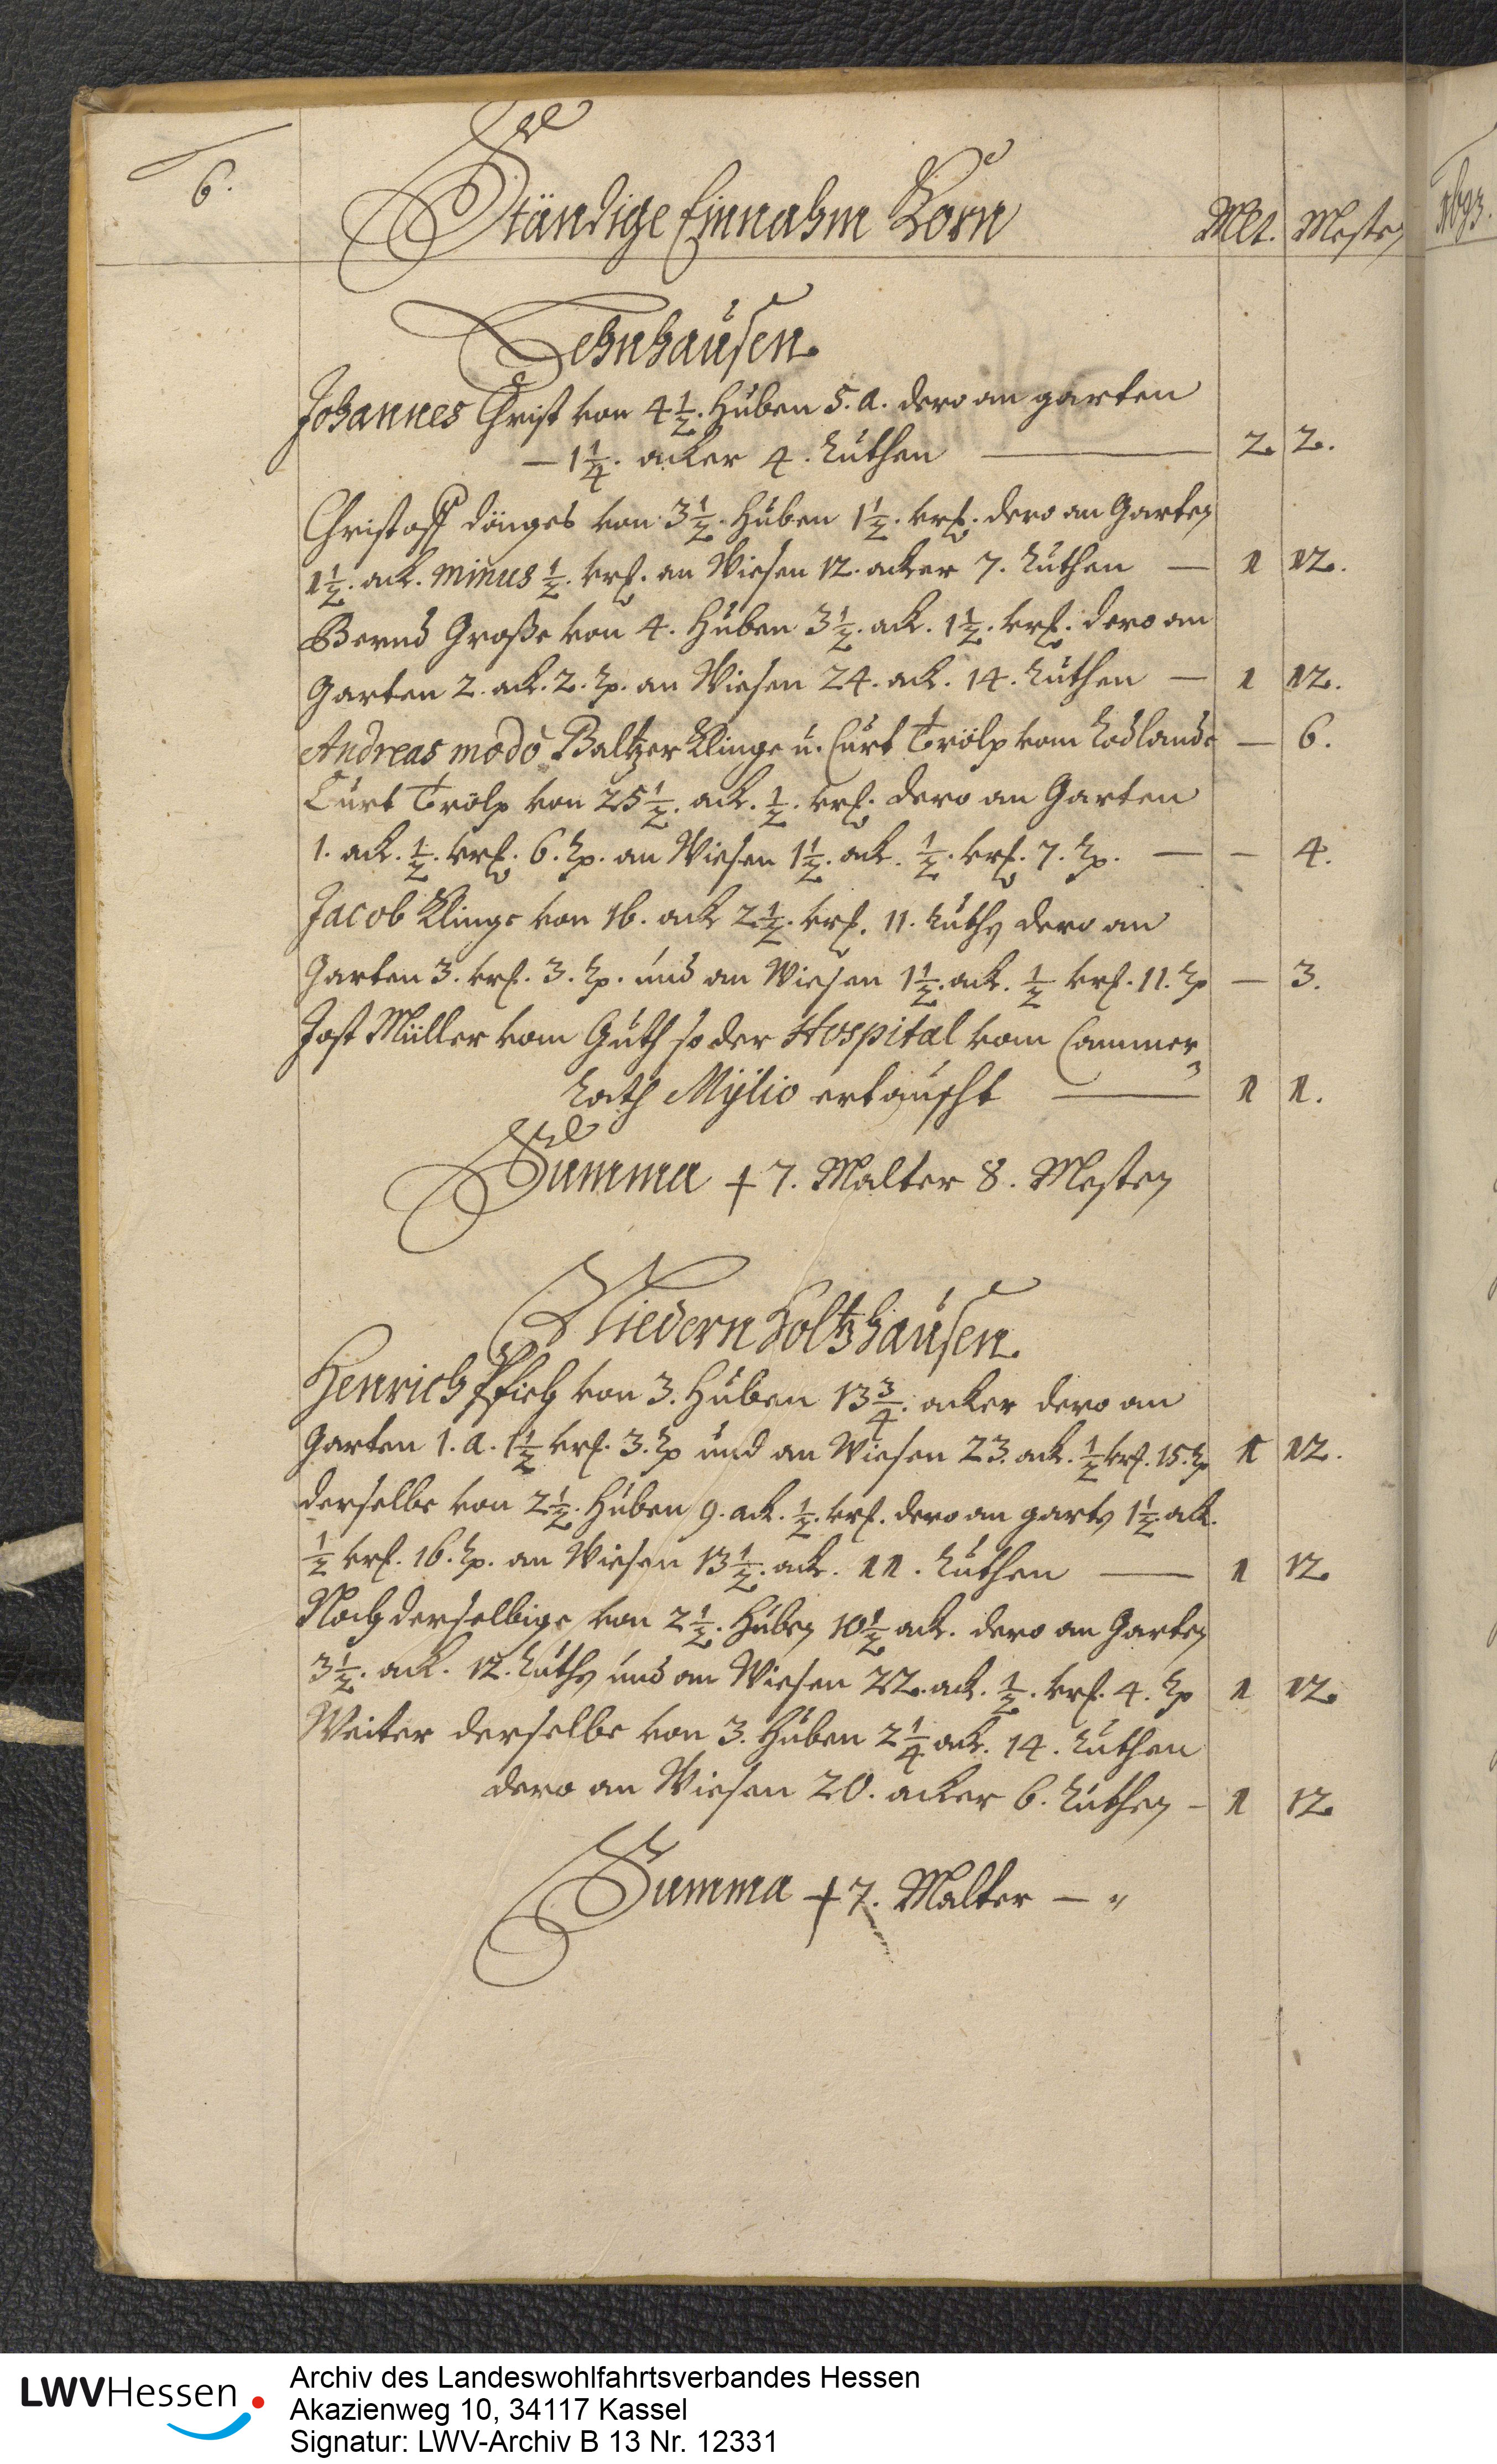 6.
Ständige Einnahm Korn
Mlt. Mesten
Dehnhausen.
Johannes Christ von 4 1/2. Huben 5. a. dero an garten
— 1 1/4. acker 4. Ruthen — 2. 2.
Christoff Dönges von 3 1/2. Huben 1 1/2. vrtl. dero an Garten
1 1/2. ack. minus 1/2. vrtl. an Wiesen 12. acker 7. Ruthen — 1 12.
Bernd Große von 4. Huben 3 1/2. ack. 1 1/2. vrtl. dero an
Garten 2. ack. 2. Rh. an Wiesen 24. ack. 14. Ruthen — 1 12.
Andreas modò Baltzer Klinge u. Curt Trölp vom Rodlande — 6.
Curt Trölp von 25 1/2. ack. 1/2. vrtl. dero an Garten
1. ack. 1/2. vrtl. 6. Rh. an Wiesen 1 1/2. ack. 1/2. vrtl. 7. Rh. — — 4.
Jacob Klinge von 16. ack 2 1/2. vrtl. 11. Ruthen dero an
Garten 3. vrtl. 3. Rh. und an Wiesen 1 1/2. ack. 1/2 vrtl. 11. Rh — 3.
Jost Müller vom Guth so der Hospital vom Cammer
Rath Mylio ertauscht — 1 1.
Summa + 7. Malter 8. Mesten
Niedern Holtzhausen.
Henrich von 3. Huben 13 3/4. acker dero an
Garten 1. a. 1 1/2 vrtl. 3. Rh und an Wiesen 23. ack. 1/2 vrtl. 15. Rh 1 12.
derselbe von 2 1/2. Huben 9. ack. 1/2. vrtl. dero an garten 1 1/2 ack.
1/2 vrtl. 16. Rh. an Wiesen 13 1/2. ack. 11. Ruthen — 1 12.
Noch derselbige von 2 1/2. Huben 10 1/2 ack. dero an Garten
3 1/2. ack. 12. Ruthen und an Wiesen 22. ack. 1/2. vrtl. 4. Rh 1 12.
Weiter derselbe von 3. Huben 2 1/4 ack. 14. Ruthen
dero an Wiesen 20. acker 6. Ruthen — 1 12.
Summa + 7. Malter — "
LWVHessen
Archiv des Landeswohlfahrtsverbandes Hessen
Akazienweg 10, 34117 Kassel
Signatur: LWV-Archiv B 13 Nr. 12331